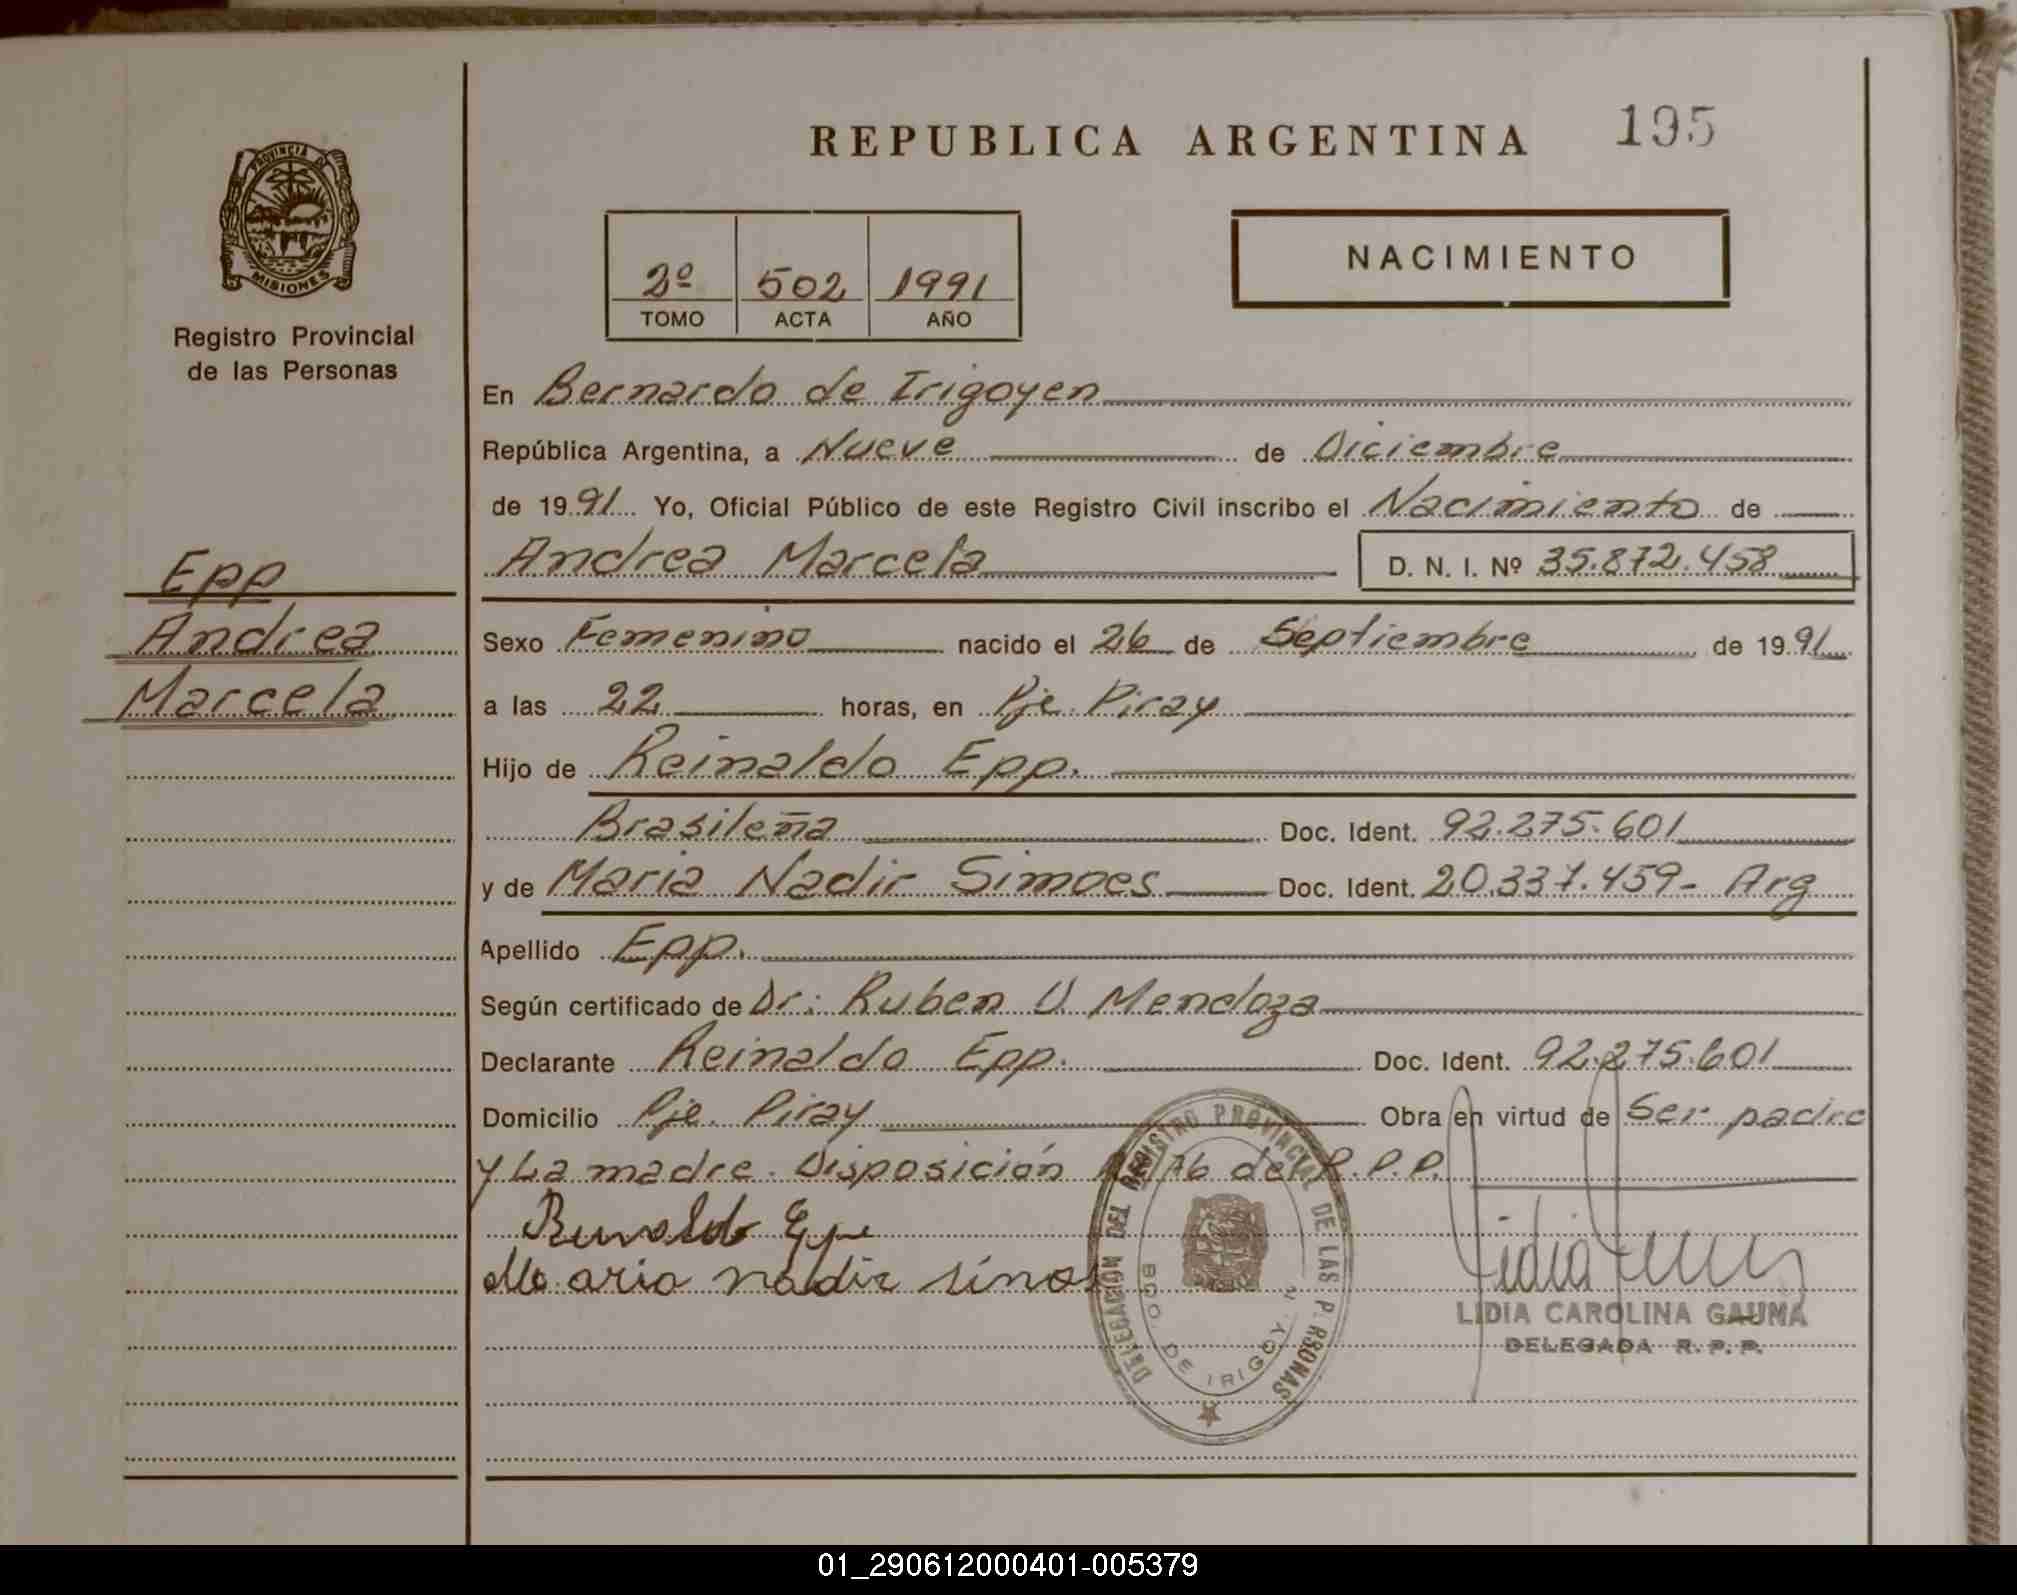 REPUBLICA ARGENTINA 195
PROVINCIA DE
MISIONES
Registro Provincial
de las Personas
2º 502 1991
TOMO ACTA AÑO
NACIMIENTO
En Bernardo de Irigoyen
República Argentina, a Nueve de Diciembre
de 1991 Yo, Oficial Público de este Registro Civil inscribo el Nacimiento de
Andrea Marcela D. N. I. Nº 35.872.458
Epp
Andrea
Marcela
Sexo Femenino nacido el 26 de Septiembre de 1991
a las 22 horas, en Pje. Piray
Hijo de Reinaldo Epp.
Brasileña Doc. Ident. 92.275.601
y de Maria Nadir Simoes Doc. Ident. 20.337.459- Arg
Apellido Epp.
Según certificado de Dr: Ruben U. Mendoza
Declarante Reinaldo Epp. Doc. Ident. 92.275.601
Domicilio Pje. Piray Obra en virtud de Ser padre
y La madre. Disposición 76 del R.P.P.
Maria nadir
DELEGACIÓN DEL REGISTRO PROVINCIAL DE LAS P RSONAS
BDO. DE IRIGOY N
Lidia
LIDIA CAROLINA GAUNA
DELEGADA R. P. P.
01_290612000401-005379